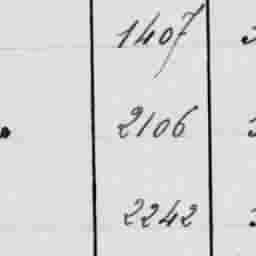 1407
2106
2242